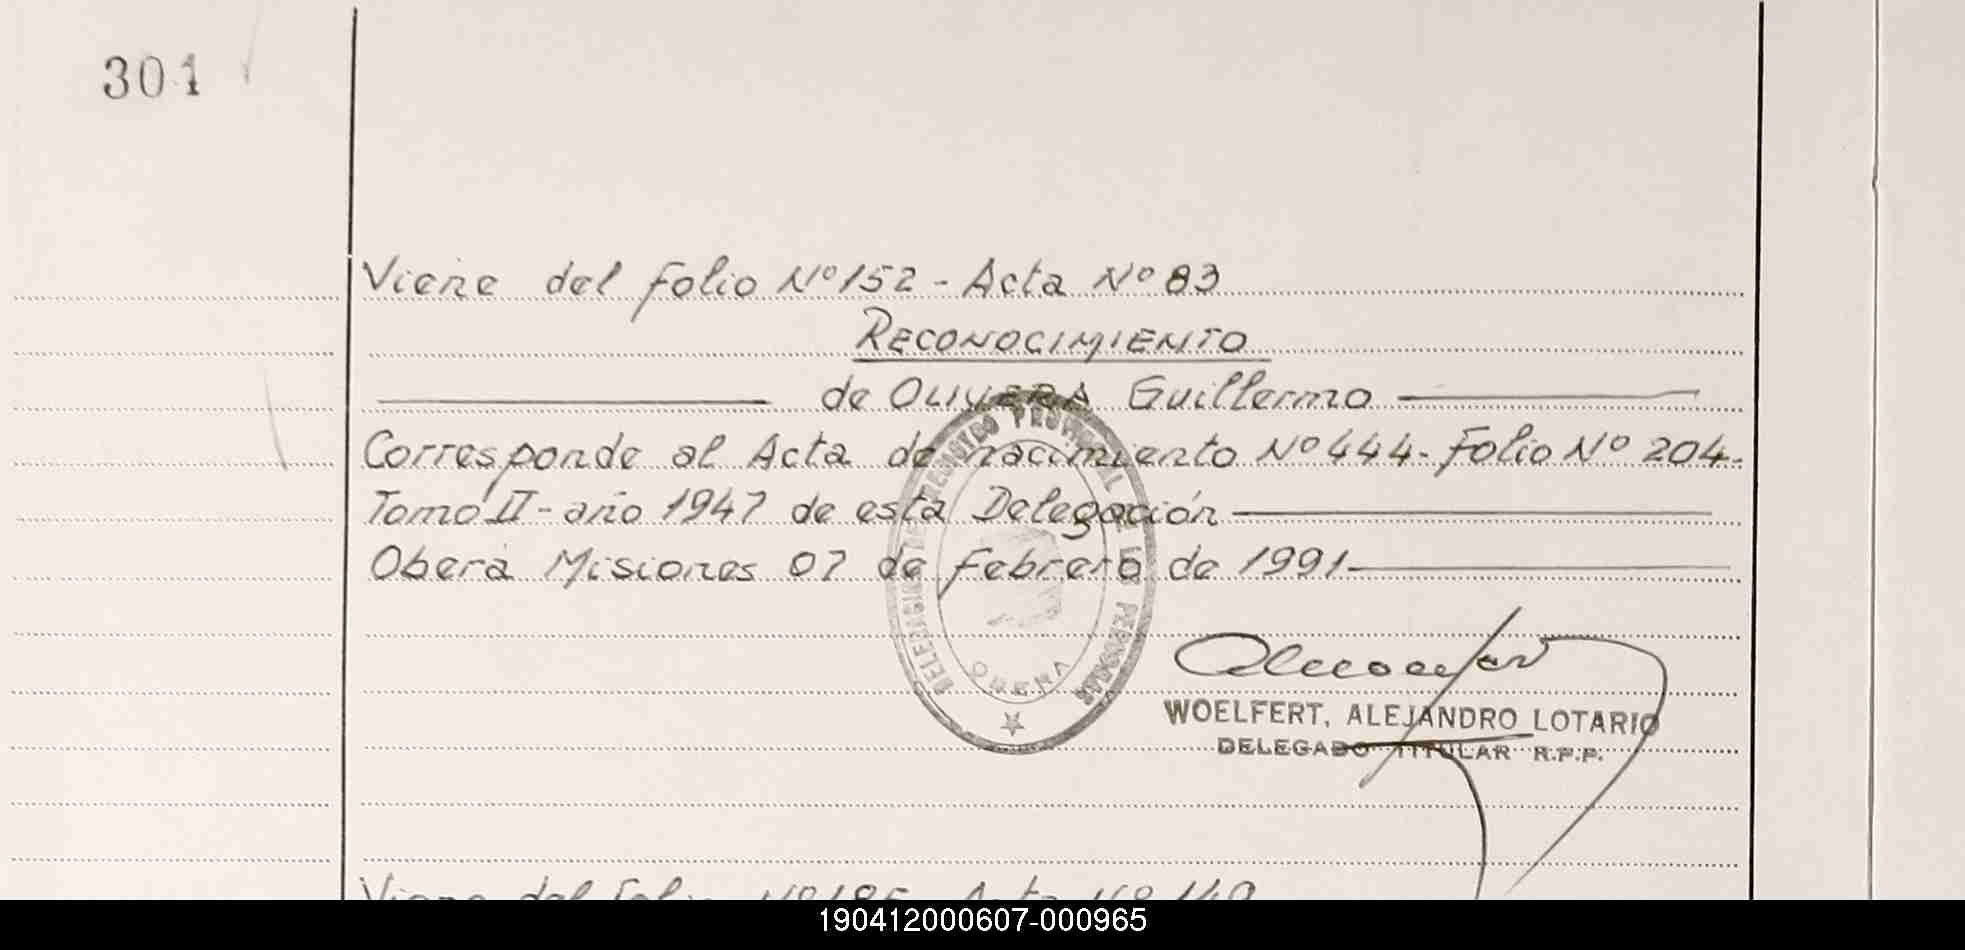 301
Viene del folio Nº 152 - Acta Nº 83
RECONOCIMIENTO
de OLIVERA Guillermo
Corresponde al Acta de nacimiento Nº 444 - Folio Nº 204 -
Tomo II - año 1947 de esta Delegación
Oberá Misiones 07 de febrero de 1991
PROVINCIAL DE LAS PERSONAS
OBERA
WOELFERT, ALEJANDRO LOTARIO
DELEGADO TITULAR R.P.P.
Viene del folio Nº 186 - Acta Nº 149
190412000607-000965